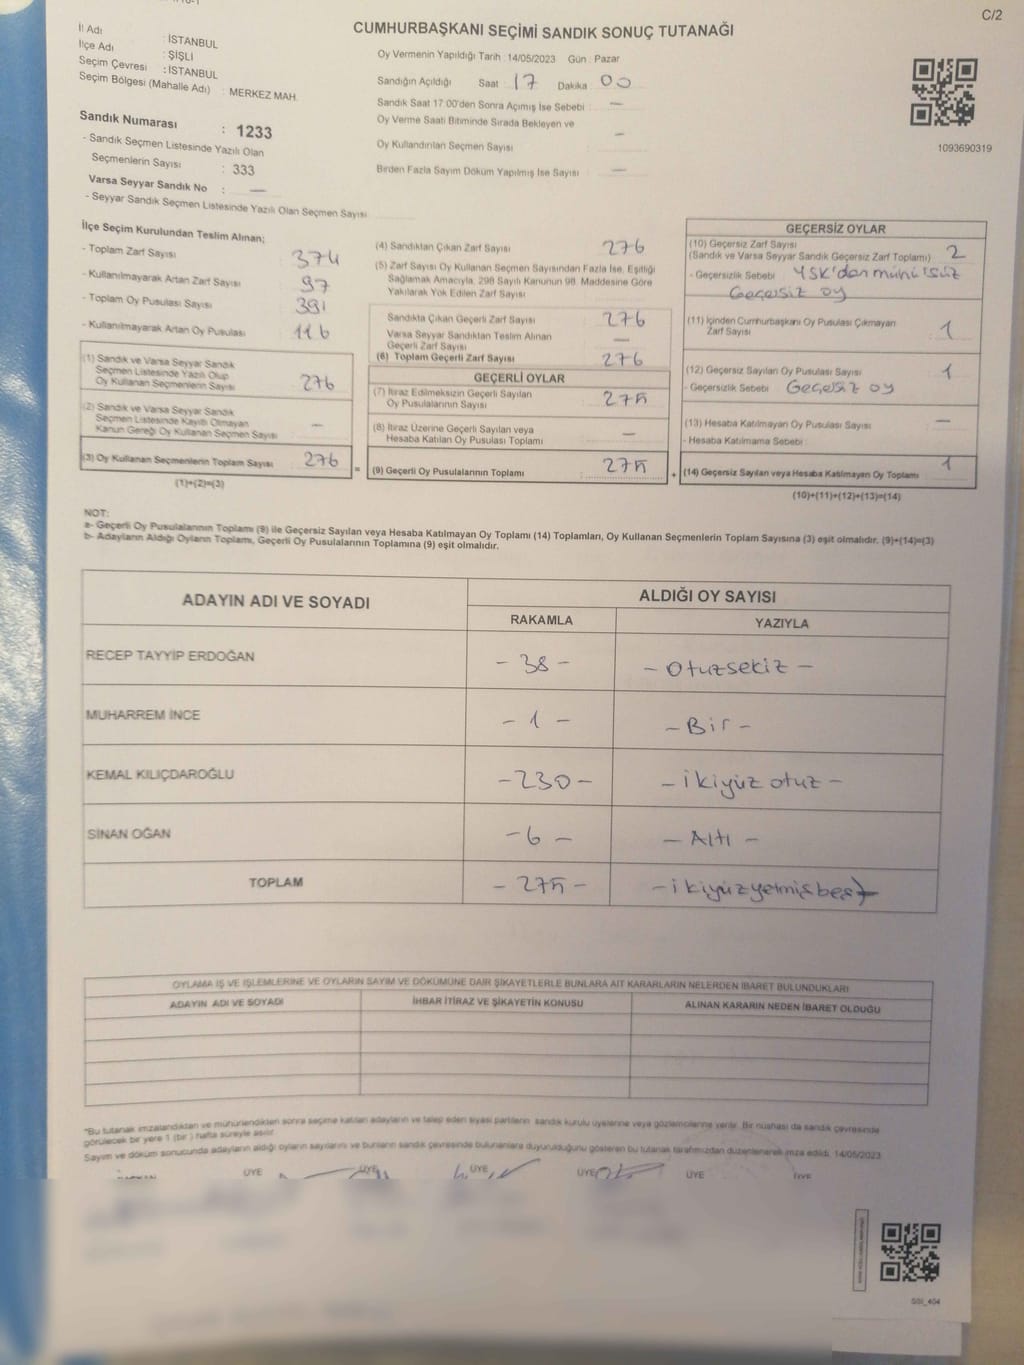 C/2
CUMHURBAŞKANI SEÇİMİ SANDIK SONUÇ TUTANAĞI
İl Adı : İSTANBUL
İlçe Adı : ŞİŞLİ
Seçim Çevresi : İSTANBUL
Seçim Bölgesi (Mahalle Adı) : MERKEZ MAH.
Sandık Numarası : 1233
- Sandık Seçmen Listesinde Yazılı Olan
Seçmenlerin Sayısı : 333
Varsa Seyyar Sandık No : —
- Seyyar Sandık Seçmen Listesinde Yazılı Olan Seçmen Sayısı
Oy Vermenin Yapıldığı Tarih : 14/05/2023 Gün : Pazar
Sandığın Açıldığı Saat : 17 Dakika : 00
Sandık Saat 17.00'den Sonra Açımış İse Sebebi : —
Oy Verme Saati Bitiminde Sırada Bekleyen ve
Oy Kullandırılan Seçmen Sayısı : —
Birden Fazla Sayım Döküm Yapılmış İse Sayısı : —
1093690319
İlçe Seçim Kurulundan Teslim Alınan;
- Toplam Zarf Sayısı : 374
- Kullanılmayarak Artan Zarf Sayısı : 97
- Toplam Oy Pusulası Sayısı : 391
- Kullanılmayarak Artan Oy Pusulası : 116
(1) Sandık ve Varsa Seyyar Sandık
Seçmen Listesinde Yazılı Olup
Oy Kullanan Seçmenlerin Sayısı : 276
(2) Sandık ve Varsa Seyyar Sandık
Seçmen Listesinde Kayıtlı Olmayan
Kanun Gereği Oy Kullanan Seçmen Sayısı : —
(3) Oy Kullanan Seçmenlerin Toplam Sayısı : 276
(1)+(2)=(3)
(4) Sandıktan Çıkan Zarf Sayısı 276
(5) Zarf Sayısı Oy Kullanan Seçmen Sayısından Fazla İse, Eşitliği
Sağlamak Amacıyla, 298 Sayılı Kanunun 98. Maddesine Göre
Yakılarak Yok Edilen Zarf Sayısı
Sandıkta Çıkan Geçerli Zarf Sayısı : 276
Varsa Seyyar Sandıktan Teslim Alınan
Geçerli Zarf Sayısı : —
(6) Toplam Geçerli Zarf Sayısı : 276
GEÇERLİ OYLAR
(7) İtiraz Edilmeksizin Geçerli Sayılan
Oy Pusulalarının Sayısı : 275
(8) İtiraz Üzerine Geçerli Sayılan veya
Hesaba Katılan Oy Pusulası Toplamı : —
= (9) Geçerli Oy Pusulalarının Toplamı : 275
GEÇERSİZ OYLAR
(10) Geçersiz Zarf Sayısı 2
(Sandık ve Varsa Seyyar Sandık Geçersiz Zarf Toplamı)
- Geçersizlik Sebebi : YSK'dan mühürsüz
Geçersiz oy
(11) İçinden Cumhurbaşkanı Oy Pusulası Çıkmayan
Zarf Sayısı : 1
(12) Geçersiz Sayılan Oy Pusulası Sayısı : 1
- Geçersizlik Sebebi : Geçersiz oy
(13) Hesaba Katılmayan Oy Pusulası Sayısı : —
- Hesaba Katılmama Sebebi :
+ (14) Geçersiz Sayılan veya Hesaba Katılmayan Oy Toplamı : 1
(10)+(11)+(12)+(13)=(14)
NOT:
a- Geçerli Oy Pusulalarının Toplamı (9) ile Geçersiz Sayılan veya Hesaba Katılmayan Oy Toplamı (14) Toplamları, Oy Kullanan Seçmenlerin Toplam Sayısına (3) eşit olmalıdır. (9)+(14)=(3)
b- Adayların Aldığı Oyların Toplamı, Geçerli Oy Pusulalarının Toplamına (9) eşit olmalıdır.
ADAYIN ADI VE SOYADI ALDIĞI OY SAYISI
RAKAMLA YAZIYLA
RECEP TAYYİP ERDOĞAN - 38 - - Otuzsekiz -
MUHARREM İNCE - 1 - - Bir -
KEMAL KILIÇDAROĞLU - 230 - - ikiyüz otuz -
SİNAN OĞAN - 6 - - Altı -
TOPLAM - 275 - - ikiyüzyetmişbeş -
OYLAMA İŞ VE İŞLEMLERİNE VE OYLARIN SAYIM VE DÖKÜMÜNE DAİR ŞİKAYETLERLE BUNLARA AİT KARARLARIN NELERDEN İBARET BULUNDUKLARI
ADAYIN ADI VE SOYADI İHBAR İTİRAZ VE ŞİKAYETİN KONUSU ALINAN KARARIN NEDEN İBARET OLDUĞU
*Bu tutanak imzalandıktan ve mühürlendikten sonra seçime katılan adayların ve talep eden siyasi partilerin sandık kurulu üyelerine veya gözlemcilerine verilir. Bir nüshası da sandık çevresinde
görülecek bir yere 1 (bir) hafta süreyle asılır.
Sayım ve döküm sonucunda adayların aldığı oyların sayılarını ve bunların sandık çevresinde bulunanlara duyurulduğunu gösteren bu tutanak tarafımızdan düzenlenerek imza edildi. 14/05/2023
ÜYE ÜYE ÜYE ÜYE ÜYE ÜYE
SSI_404